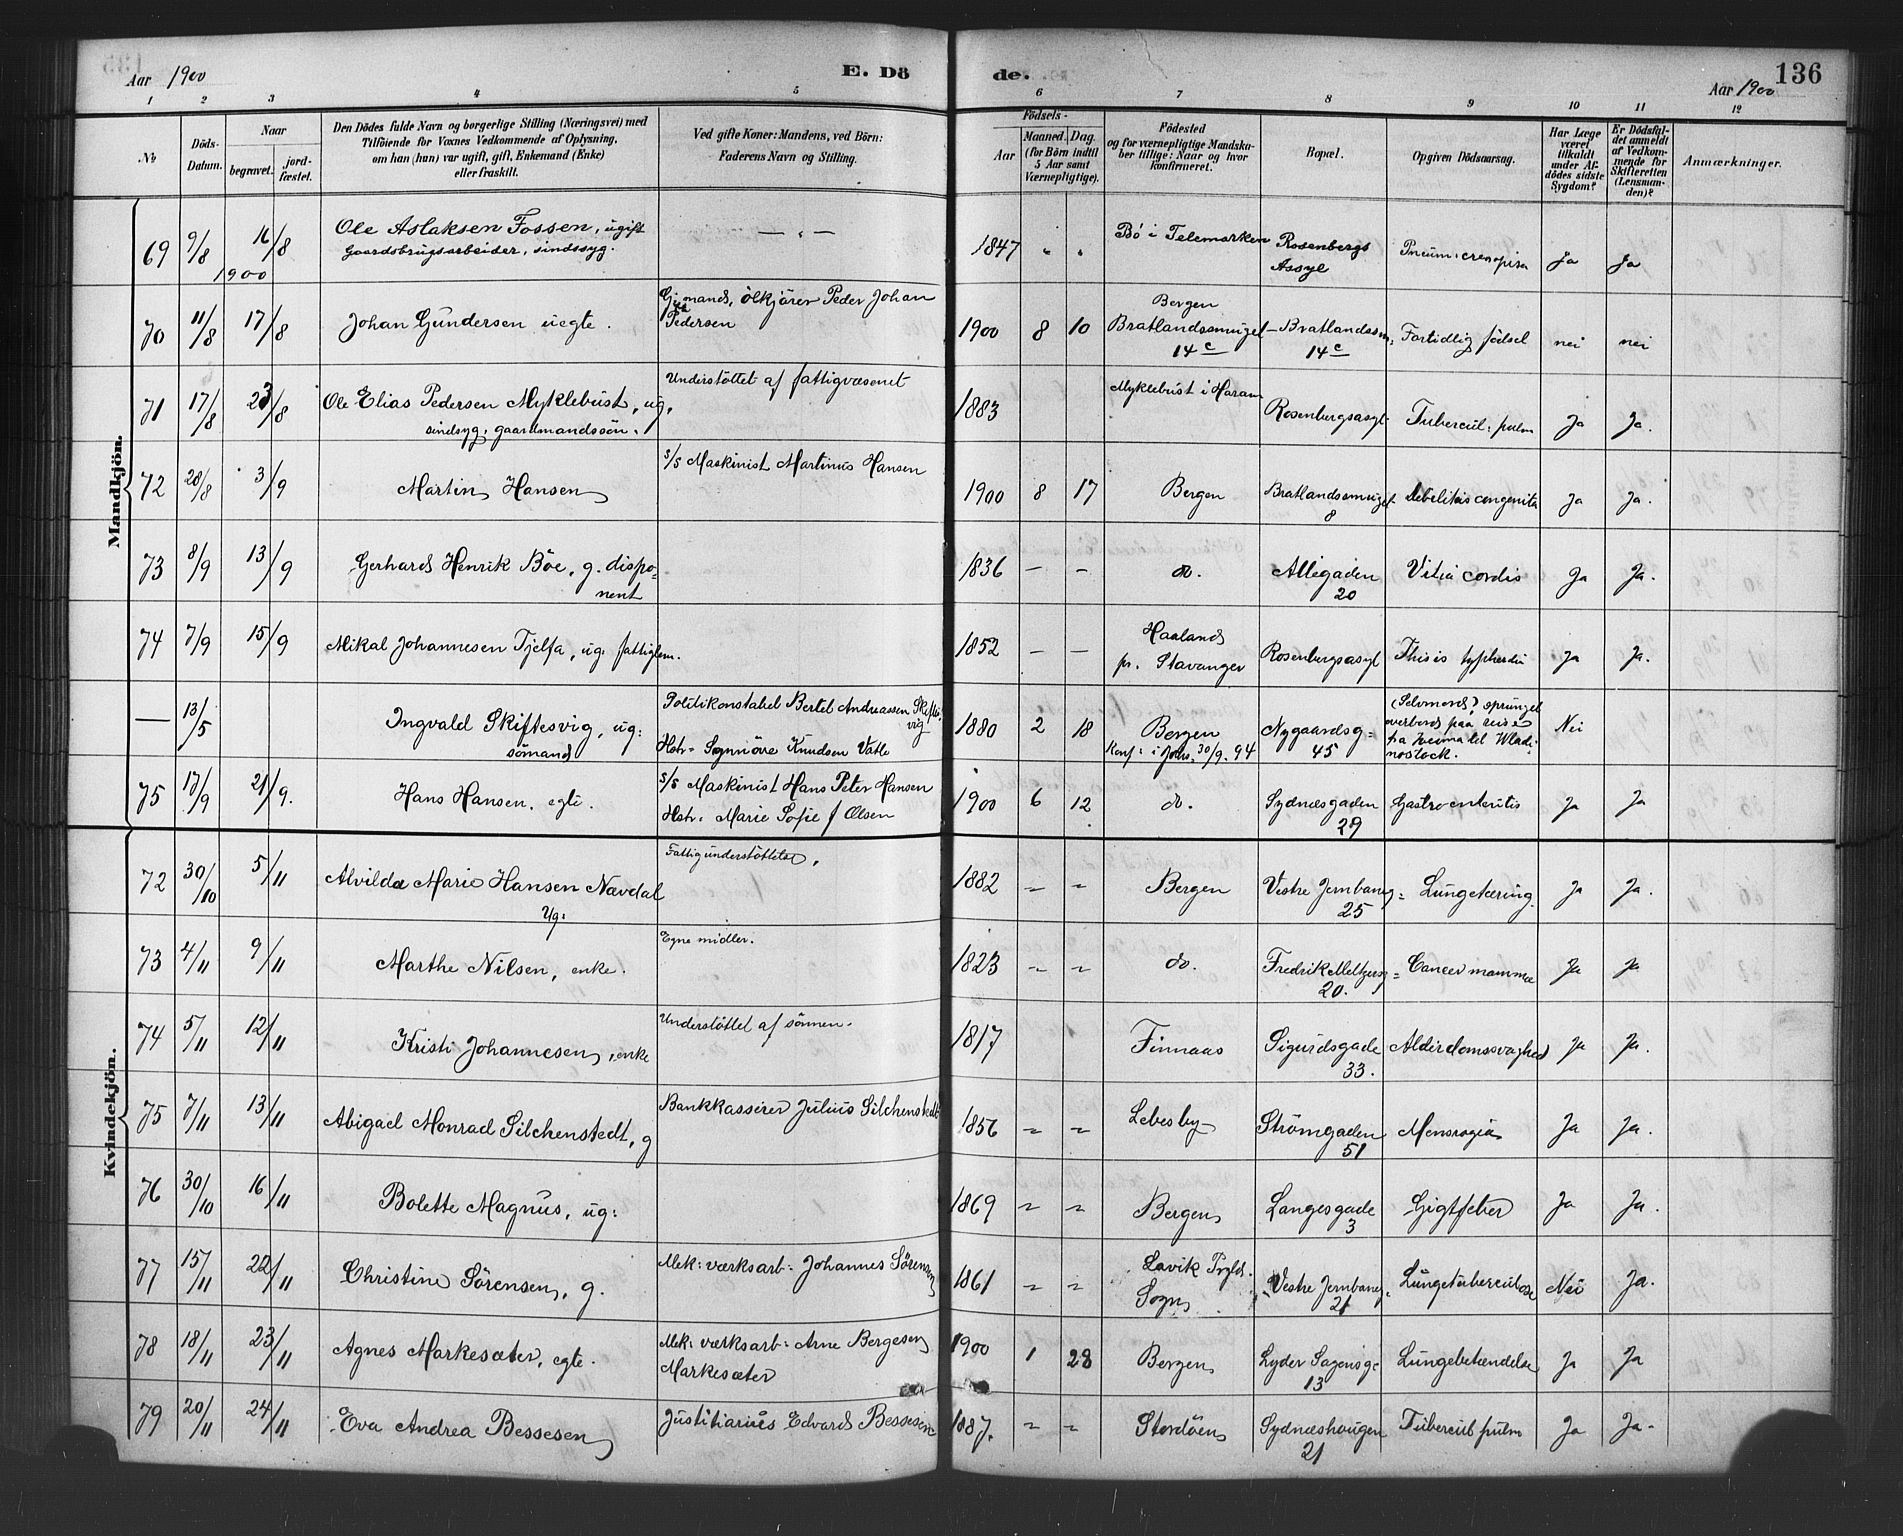 Aar 1900
E. Dö
de.
Aar 1900
136
1 2 3 4 5 6 7 8 9 10 11 12
No
Döds-Datum.
Naar
begravet.
jord-fæstet.
Den Dödes fulde Navn og borgerlige Stilling (Næringsvei) med
Tilföiende for Voxnes Vedkommende af Oplysning,
om han (hun) var ugift, gift, Enkemand (Enke)
eller fraskilt.
Ved gifte Koner: Mandens, ved Börn:
Faderens Navn og Stilling.
Födsels-
Aar
Maaned.
Dag.
(for Börn indtil
5 Aar samt
Værnepligtige).
Födested
og for værnepligtige Mandska-
ber tillige: Naar og hvor
konfirmeret.
Bopæl.
Opgiven Dödsaarsag.
Har Læge
været
tilkaldt
under Af-
dödes sidste
Sygdom?
Er Dödsfal-
det anmeldt
af Vedkom-
mende for
Skifteretten
(Lensman-
den)?
Anmærkninger.
Mandkjön.
69 9/8 16/8 1900 Ole Aslaksen Fossen, ugift
Gaardsbrugsarbeider, sindssyg.
1847 Bö i Telemarken Rosenbergs
Assyl Ja Ja
70 11/8 17/8 Johan Gundersen uegte. mand, ölkjörer Peder Johan
Pedersen
1900 8 10 Bergen
Bratlandssmuget
14c
Bratlandssm:
14c
Fortidlig födsel nei nei
71 17/8 23/8 Ole Elias Pedersen Myklebust, ug,
sindsyg, gaardmandssön.
Understöttet af fattigvæsenet
1883 Myklebust i Haram Rosenbergsasyl Tubercul: pulm Ja Ja.
72 28/8 3/9 Martin Hansen S/S Maskinist Martinus Hansen
1900 8 17 Bergen Bratlandssmuget
8
debilitas congenita Ja Ja.
73 8/9 13/9 Gerhard Henrik Böe, g. dispo-
nent
1836 — — do. Allégaden
20
Vitia cordis Ja Ja.
74 7/9 15/9 Mikal Johannesen Tjelfa, ug. fattiglem.
1852 — — Haaland
pr. Stavanger
Rosenbergsasyl Ja Ja.
— 13/5 Ingvald Skiftesvig, ug:
sömand
Politikonstabel Bertel Andreassen Skiftes-
vig
Hstr= Synnöve Knudsen Vatle
1880 2 18 Bergen
Konf: i Johs. 30/9. 94
Nygaardsg=
45
(Selvmord) sprunget
overbord paa reise
fra til Wladi-
vostock.
Nei
75 17/9 21/9. Hans Hansen, egte. S/S Maskinist Hans Peter Hansen
Hstr. Marie Sofie f Olsen
1900 6 12 do. Sydnæsgaden
29
Gastroenteritis Ja Ja
Kvindekjön.
72 30/10 5/11 Alvilda Marie Hansen Navdal
Ug:
Fattigunderstöttelse,
1882 Bergen Vestre Jernbaneg=
25
Lungetæring. Ja Ja.
73 4/11 9/11 Marthe Nilsen, enke. Egne midler.
1823 do. Fredrik Meltzersg=
20.
Cancer mamma Ja Ja
74 5/11 12/11 Kristi Johannesen, enke Understöttet af sönnen.
1817 Finnaas Sigurdsgade
33.
Alderdomssvaghed Ja Ja.
75 7/11 13/11 Abigael Monrad Silchenstedt, g Bankkasserer Julius Silchenstedt
1856 Lebesby Strömgaden
51
Ja Ja.
76 30/10 16/11 Bolette Magnus, ug:
1869 Bergen Langesgade
3
Gigtfeber Ja Ja.
77 15/11 22/11 Christine Sörensen, g. Mek: værksarb: Johannes Sörensen
1861 Lavik Prgld.
Sogn
Vestre Jernbaneg.
21
Lungetuberculose Nei Ja.
78 18/11 23/11 Agnes Markesæter, egte. Mek: værksarb: Arne Bergesen
Markesæter
1900 1 28 Bergen Lyder Sagensg:
13
Lungebetændelse Ja Ja
79 20/11 24/11 Eva Andrea Bessesen Justitiarius Edvard Bessesen
1887. Stordöen Sydnæshaugen
21
Tubercul pulm Ja Ja.